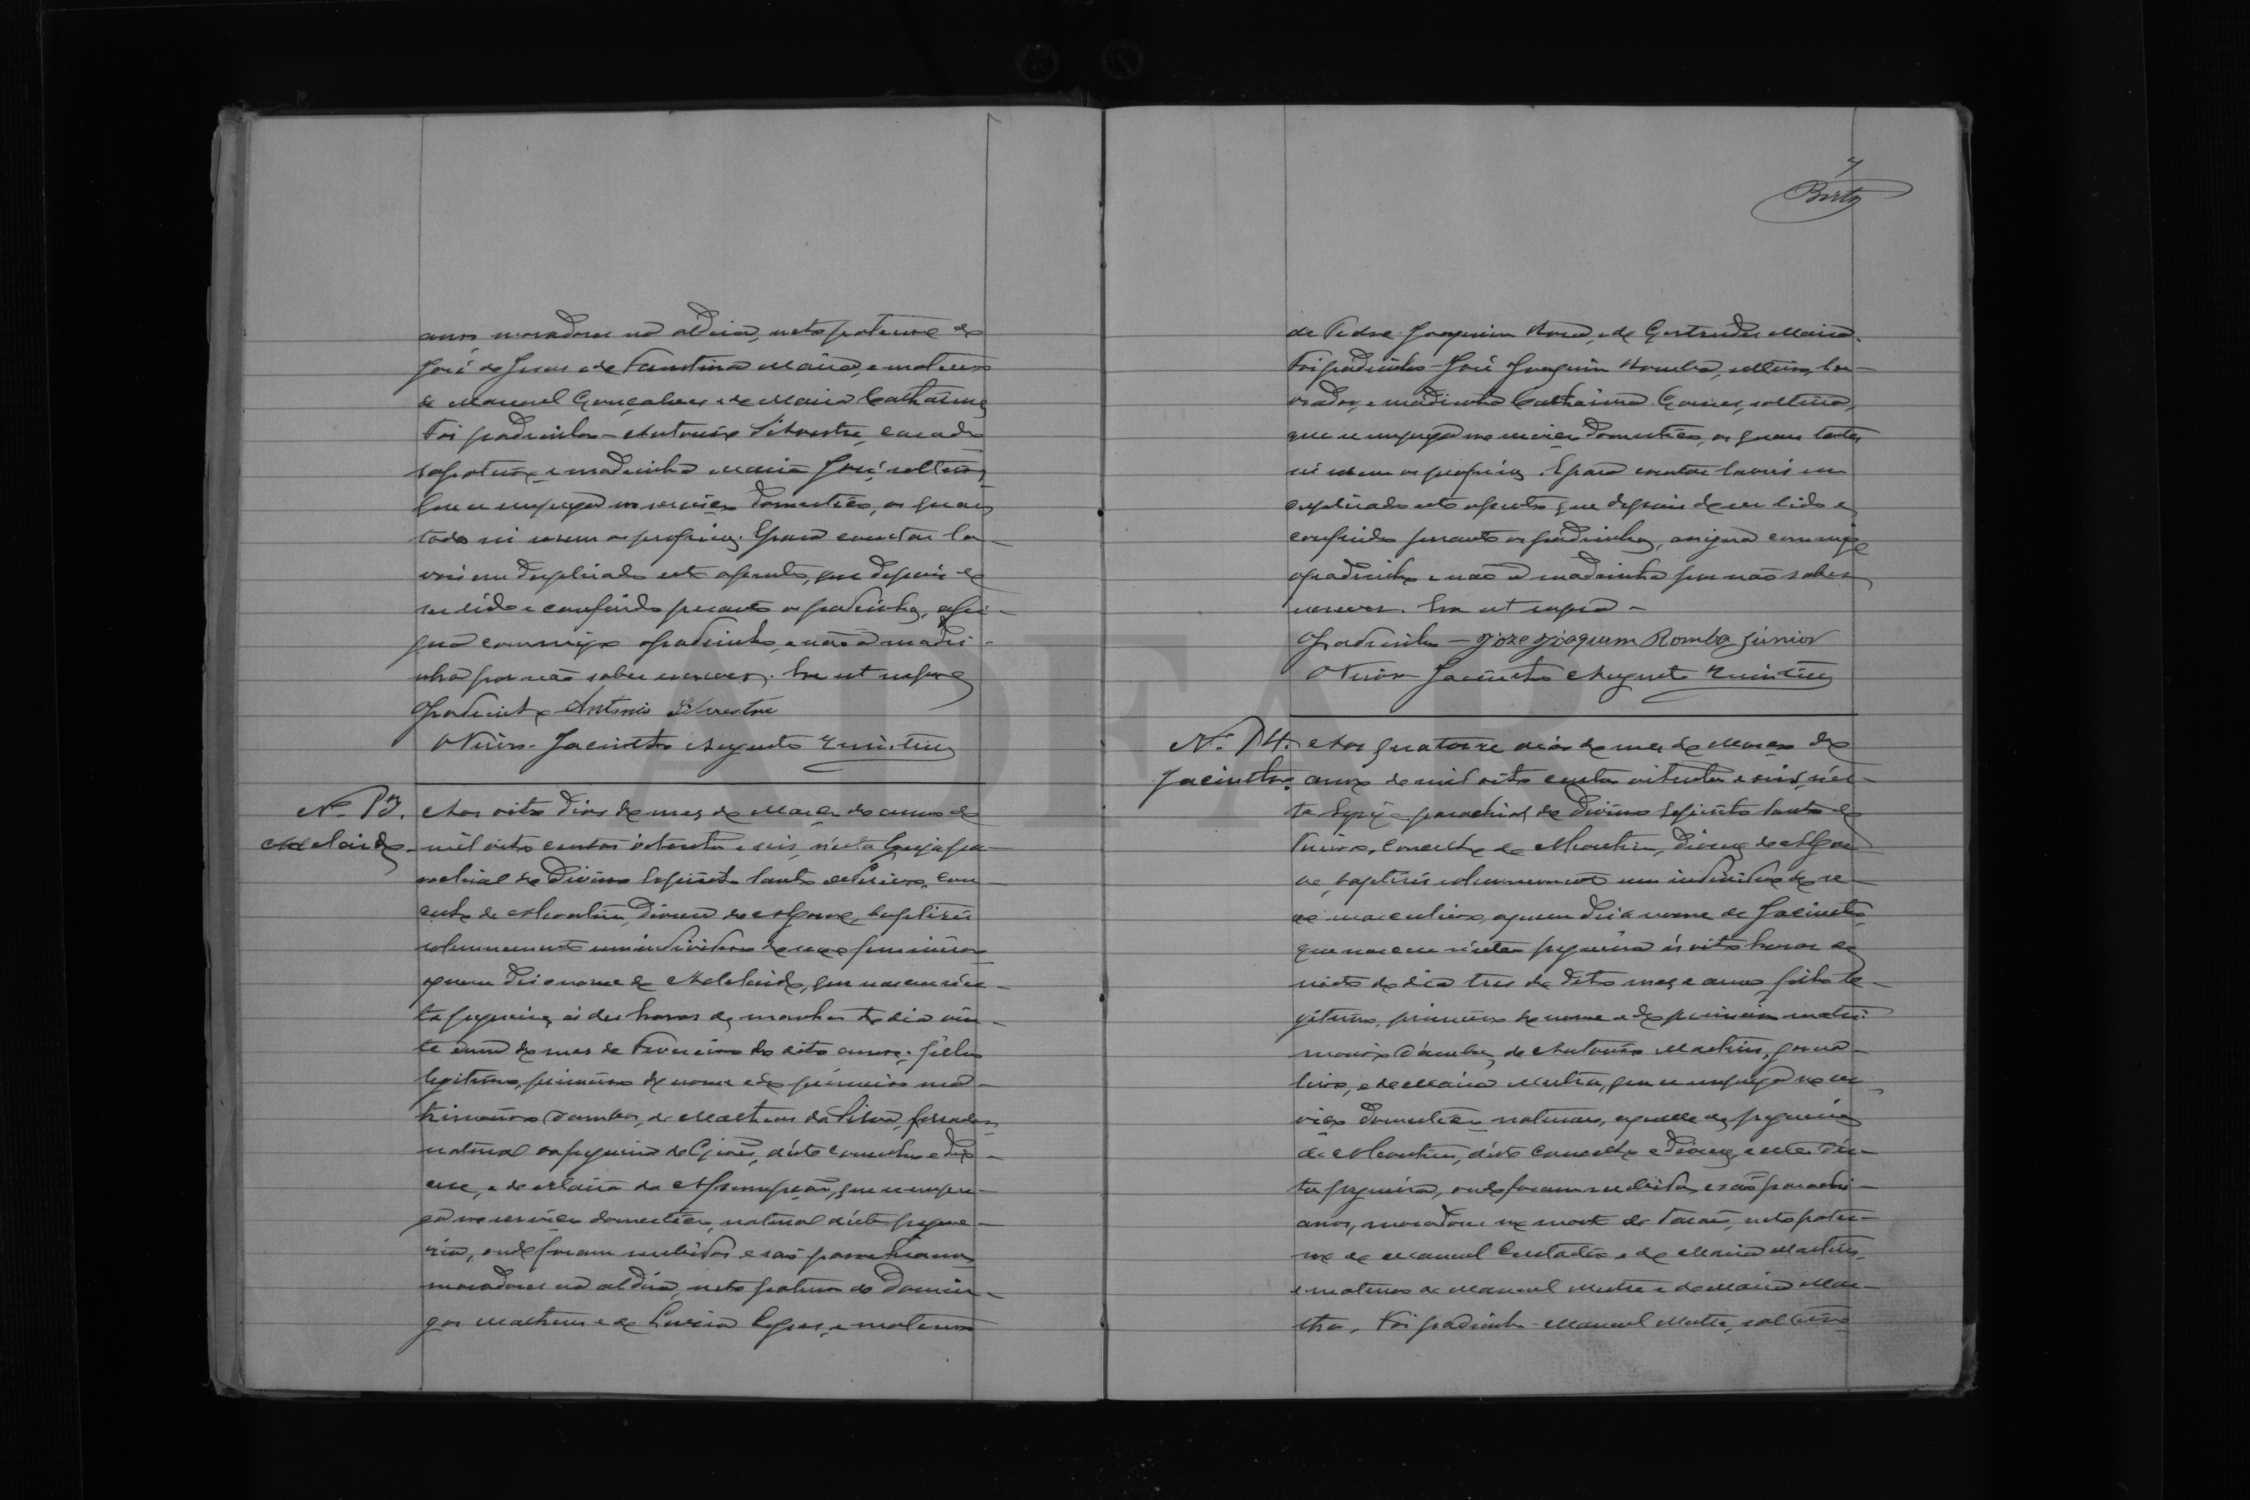 annos moradores na aldeia, neto paterno de
José de Jesus e de Faustina Maria, e materno
de Manoel Gonçalves e de Maria Catharina
Foi padrinho - Antonio Silvestre, casado
sapateiro e madrinha Maria José, solteira,
que se emprega no serviço domestico, os quaes
todos sei serem os proprios. E para constar la-
vrei em duplicado este assento, que depois de
ser lido e conferido perante os padrinhos, assi-
gna commigo o padrinho, e não a madri-
nha por não saber escrever. Era ut supra
O padrinho Antonio Silvestre
O Prior. Jacintho Augusto
Nº 13.
Adelaide
Aos oito dias do mez de Março do anno de
mil oito centos oitenta e seis, n'esta Egreja pa-
rochial do Divino Espirito Santo de Pereiro, con-
celho de Alcoutim, Diocese do Algarve, baptisei
solemnemente um individuo do sexo feminino
a quem dei o nome de Adelaide, que nasceu n'es-
ta freguezia, ás dez horas da manhã do dia vin-
te e um do mez de Fevereiro do dito anno; filha
legitima, primeira do nome e do primeiro ma-
trimonio d'ambos, de Matheus da Silva, ferrador
natural da freguezia de Giões, d'este concelho e Dio-
cese, e de Maria da Assumpção, que se empre-
ga no serviço domestico, natural d'esta fregue-
zia, onde foram recebidos e são parochianos
moradores na aldeia, neta paterna de Domin-
gos Matheus e de Luzia Lopes, e materna
7
Brito
de Pedro Joaquim e de Gertrudes Maria.
Foi padrinho - José Joaquim Romba, solteiro, la-
vrador, e madrinha Catharina Gomes, solteira,
que se emprega no serviço domestico, os quaes todos
sei serem os proprios. E para constar lavrei em
duplicado este assento, que depois de ser lido e
conferido perante os padrinhos, assigna commigo
o padrinho e não a madrinha por não saber
escrever. Era ut supra -
O padrinho - Joze Joaquim Romba Junior
O Prior Jacintho Augusto
Nº 14.
Jacintho.
Aos quatorze dias do mez de Março do
anno de mil oito centos oitenta e seis, n'es-
ta Egreja parochial do Divino Espirito Santo de
Pereiro, Concelho de Alcoutim, Diocese do Algar-
ve, baptisei solemnemente um individuo do se-
xo masculino, a quem dei o nome de Jacintho
que nasceu n'esta freguezia ás oito horas da
noite do dia tres do dito mez e anno, filho le-
gitimo, primeiro do nome e do primeiro matri-
monio d'ambos, de Antonio Martins, jorna-
leiro, e de Maria Mestra, que se emprega no ser-
viço domestico, naturaes, aquelle da freguezia
de Alcoutim, d'este Concelho e Diocese e esta d'es-
ta freguezia, onde foram recebidos e são parochi-
anos, moradores no monte de neto pater-
no de Manoel Custodio e de Maria Martins,
e materno de Manoel Mestre e de Maria Mar-
tha. Foi padrinho Manoel Mestre, solteiro